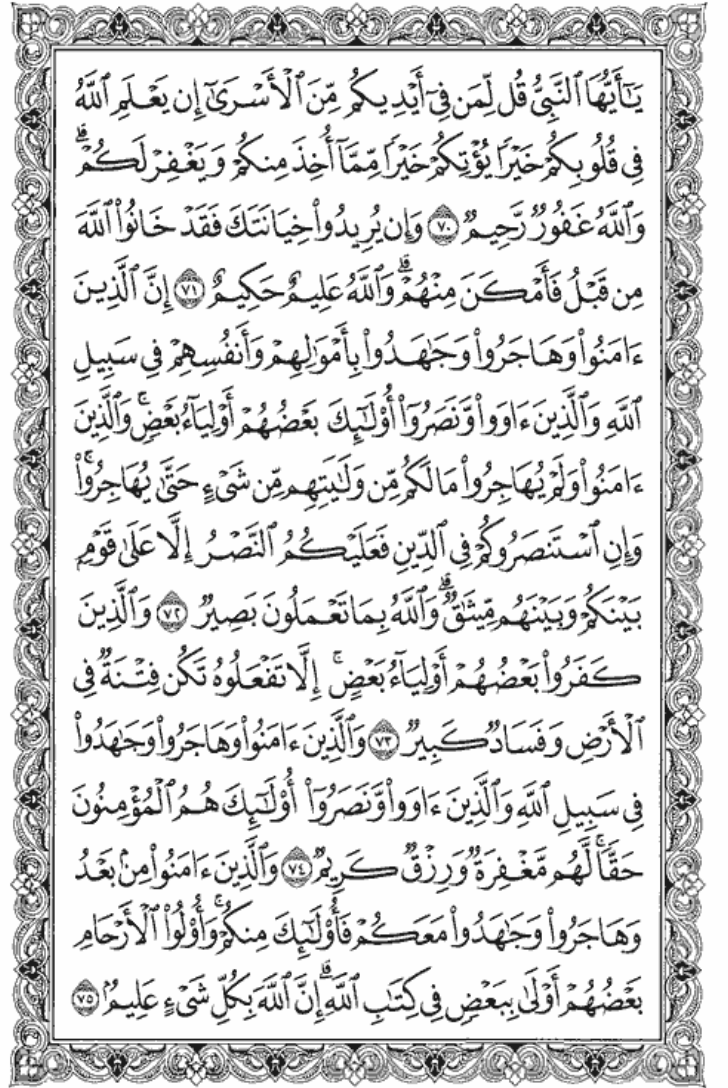 يَٰٓأَيُّهَا ٱلنَّبِيُّ قُل لِّمَن فِيٓ أَيۡدِيكُم مِّنَ ٱلۡأَسۡرَىٰٓ إِن يَعۡلَمِ ٱللَّهُ
فِي قُلُوبِكُمۡ خَيۡرٗا يُؤۡتِكُمۡ خَيۡرٗا مِّمَّآ أُخِذَ مِنكُمۡ وَيَغۡفِرۡ لَكُمۡۗ
وَٱللَّهُ غَفُورٞ رَّحِيمٞ ٧٠ وَإِن يُرِيدُواْ خِيَانَتَكَ فَقَدۡ خَانُواْ ٱللَّهَ
مِن قَبۡلُ فَأَمۡكَنَ مِنۡهُمۡۗ وَٱللَّهُ عَلِيمٌ حَكِيمٌ ٧١ إِنَّ ٱلَّذِينَ
ءَامَنُواْ وَهَاجَرُواْ وَجَٰهَدُواْ بِأَمۡوَٰلِهِمۡ وَأَنفُسِهِمۡ فِي سَبِيلِ
ٱللَّهِ وَٱلَّذِينَ ءَاوَواْ وَّنَصَرُوٓاْ أُوْلَٰٓئِكَ بَعۡضُهُمۡ أَوۡلِيَآءُ بَعۡضٖۚ وَٱلَّذِينَ
ءَامَنُواْ وَلَمۡ يُهَاجِرُواْ مَا لَكُم مِّن وَلَٰيَتِهِم مِّن شَيۡءٍ حَتَّىٰ يُهَاجِرُواْۚ
وَإِنِ ٱسۡتَنصَرُوكُمۡ فِي ٱلدِّينِ فَعَلَيۡكُمُ ٱلنَّصۡرُ إِلَّا عَلَىٰ قَوۡمِۭ
بَيۡنَكُمۡ وَبَيۡنَهُم مِّيثَٰقٞۗ وَٱللَّهُ بِمَا تَعۡمَلُونَ بَصِيرٞ ٧٢ وَٱلَّذِينَ
كَفَرُواْ بَعۡضُهُمۡ أَوۡلِيَآءُ بَعۡضٍۚ إِلَّا تَفۡعَلُوهُ تَكُن فِتۡنَةٞ فِي
ٱلۡأَرۡضِ وَفَسَادٞ كَبِيرٞ ٧٣ وَٱلَّذِينَ ءَامَنُواْ وَهَاجَرُواْ وَجَٰهَدُواْ
فِي سَبِيلِ ٱللَّهِ وَٱلَّذِينَ ءَاوَواْ وَّنَصَرُوٓاْ أُوْلَٰٓئِكَ هُمُ ٱلۡمُؤۡمِنُونَ
حَقّٗاۚ لَّهُم مَّغۡفِرَةٞ وَرِزۡقٞ كَرِيمٞ ٧٤ وَٱلَّذِينَ ءَامَنُواْ مِنۢ بَعۡدُ
وَهَاجَرُواْ وَجَٰهَدُواْ مَعَكُمۡ فَأُوْلَٰٓئِكَ مِنكُمۡۚ وَأُوْلُواْ ٱلۡأَرۡحَامِ
بَعۡضُهُمۡ أَوۡلَىٰ بِبَعۡضٖ فِي كِتَٰبِ ٱللَّهِۗ إِنَّ ٱللَّهَ بِكُلِّ شَيۡءٍ عَلِيمُۢ ٧٥